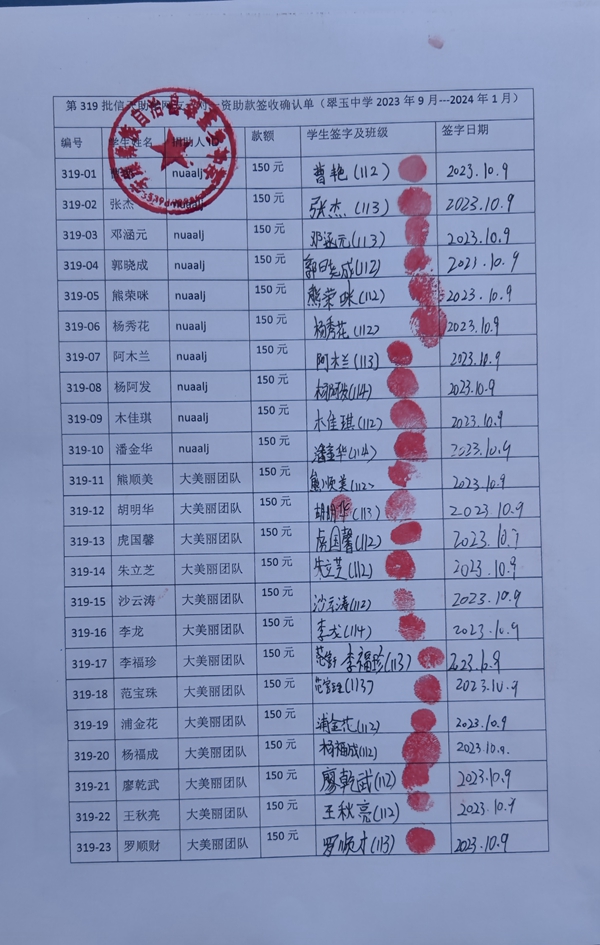 第 319 批信天助学网 资助款签收确认单（翠玉中学 2023 年 9 月---2024 年 1 月）
编号 学生姓名 捐助人ID 款额 学生签字及班级 签字日期
319-01 nuaalj 150 元 曹艳(112) 2023.10.9
319-02 张杰 nuaalj 150 元 张杰(113) 2023.10.9
319-03 邓涵元 nuaalj 150 元 邓涵元(113) 2023.10.9
319-04 郭晓成 nuaalj 150 元 郭晓成(112) 2021.10.9
319-05 熊荣咪 nuaalj 150 元 熊荣咪(112) 2023.10.9
319-06 杨秀花 nuaalj 150 元 杨秀花(112) 2023.10.9
319-07 阿木兰 nuaalj 150 元 阿木兰(113) 2023.10.9
319-08 杨阿发 nuaalj 150 元 杨阿发(114) 2023.10.9
319-09 木佳琪 nuaalj 150 元 木佳琪(112) 2023.10.9
319-10 潘金华 nuaalj 150 元 潘金华(114) 2023.10.9
319-11 熊顺美 大美丽团队 150 元 熊顺美(112) 2023.10.9
319-12 胡明华 大美丽团队 150 元 胡明华(113) 2023.10.9
319-13 虎国馨 大美丽团队 150 元 虎国馨(112) 2023.10.7
319-14 朱立芝 大美丽团队 150 元 朱立芝(112) 2023.10.9
319-15 沙云涛 大美丽团队 150 元 沙云涛(112) 2023.10.9
319-16 李龙 大美丽团队 150 元 李龙(114) 2023.10.9
319-17 李福珍 大美丽团队 150 元 李福珍(113) 2023.10.9
319-18 范宝珠 大美丽团队 150 元 范宝珠(113) 2023.10.9
319-19 浦金花 大美丽团队 150 元 浦金花(112) 2023.10.9
319-20 杨福成 大美丽团队 150 元 杨福成(112) 2023.10.9.
319-21 廖乾武 大美丽团队 150 元 廖乾武(112) 2023.10.9
319-22 王秋亮 大美丽团队 150 元 王秋亮(112) 2023.10.9
319-23 罗顺财 大美丽团队 150 元 罗顺才(113) 2023.10.9